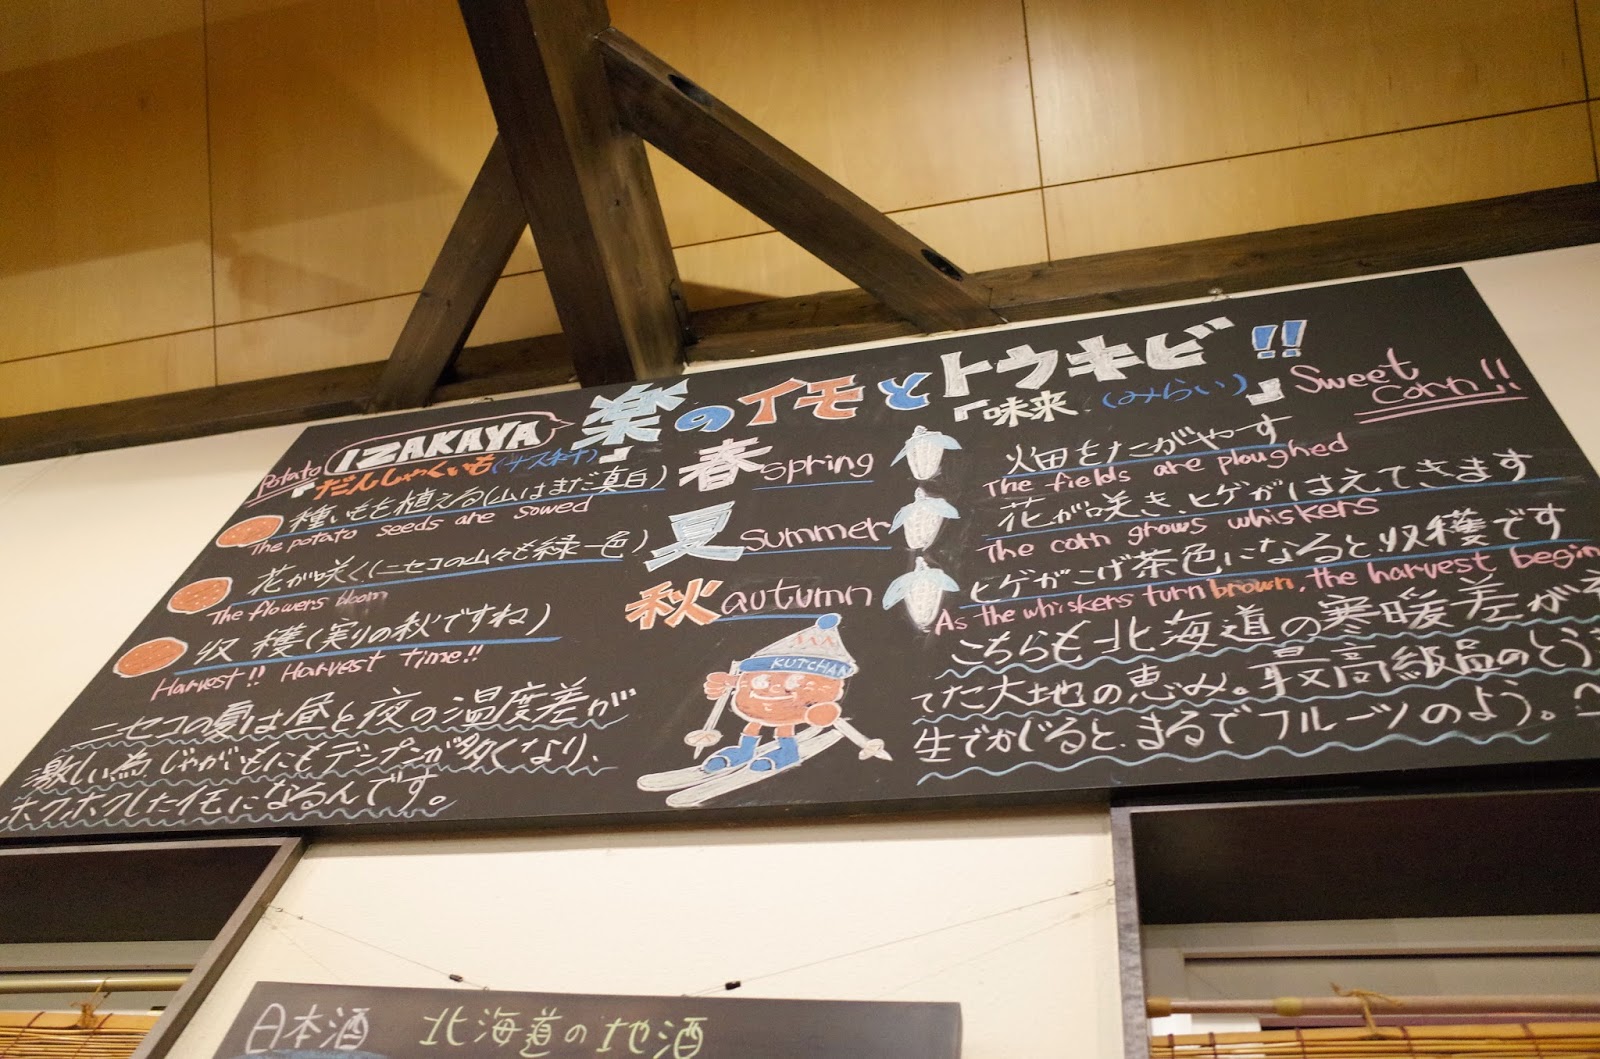 IZAKAYA 楽のイモとトウキビ!!
Potato
『だんしゃくいも(ナス科)』
種いもを植える(山はまだ真白)
The potato seeds are sowed
花が咲く(ニセコの山々も緑一色)
The flowers bloom
収穫(実りの秋ですね)
Harvest!! Harvest time!!
ニセコの夏は昼と夜の温度差が
激しい為、じゃがいもにもデンプンが多くなり、
ホクホクしたイモになるんです。
春 spring
夏 Summer
秋 autumn
KUTCHAN
『味来(みらい)』 Sweet
Corn!!
火田をたがやす
The fields are ploughed
花が咲き、ヒゲがはえてきます
The corn grows whiskers
ヒゲがこげ茶色になると、収穫です
As the whiskers turn brown, the harvest begin
こちらも北海道の寒暖差が
てた大地の恵み。最高級品のとう
生でかじると、まるでフルーツのよう。
日本酒 北海道の地酒